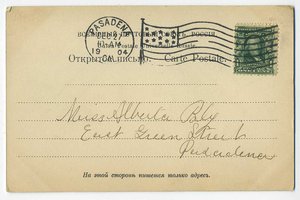 PASADENA
FEB 27
10 AM
1904
CAL.
ВСЕМІРНЫЙ ПОЧТОВЫЙ СОЮЗЪ. РОССІЯ
Union Postale Universelle. Russie
Открытое письмо. — Carte Postale.
Miss Alberta Bly
East Green Street
Pasadena
На этой сторонѣ пишется только адресъ.